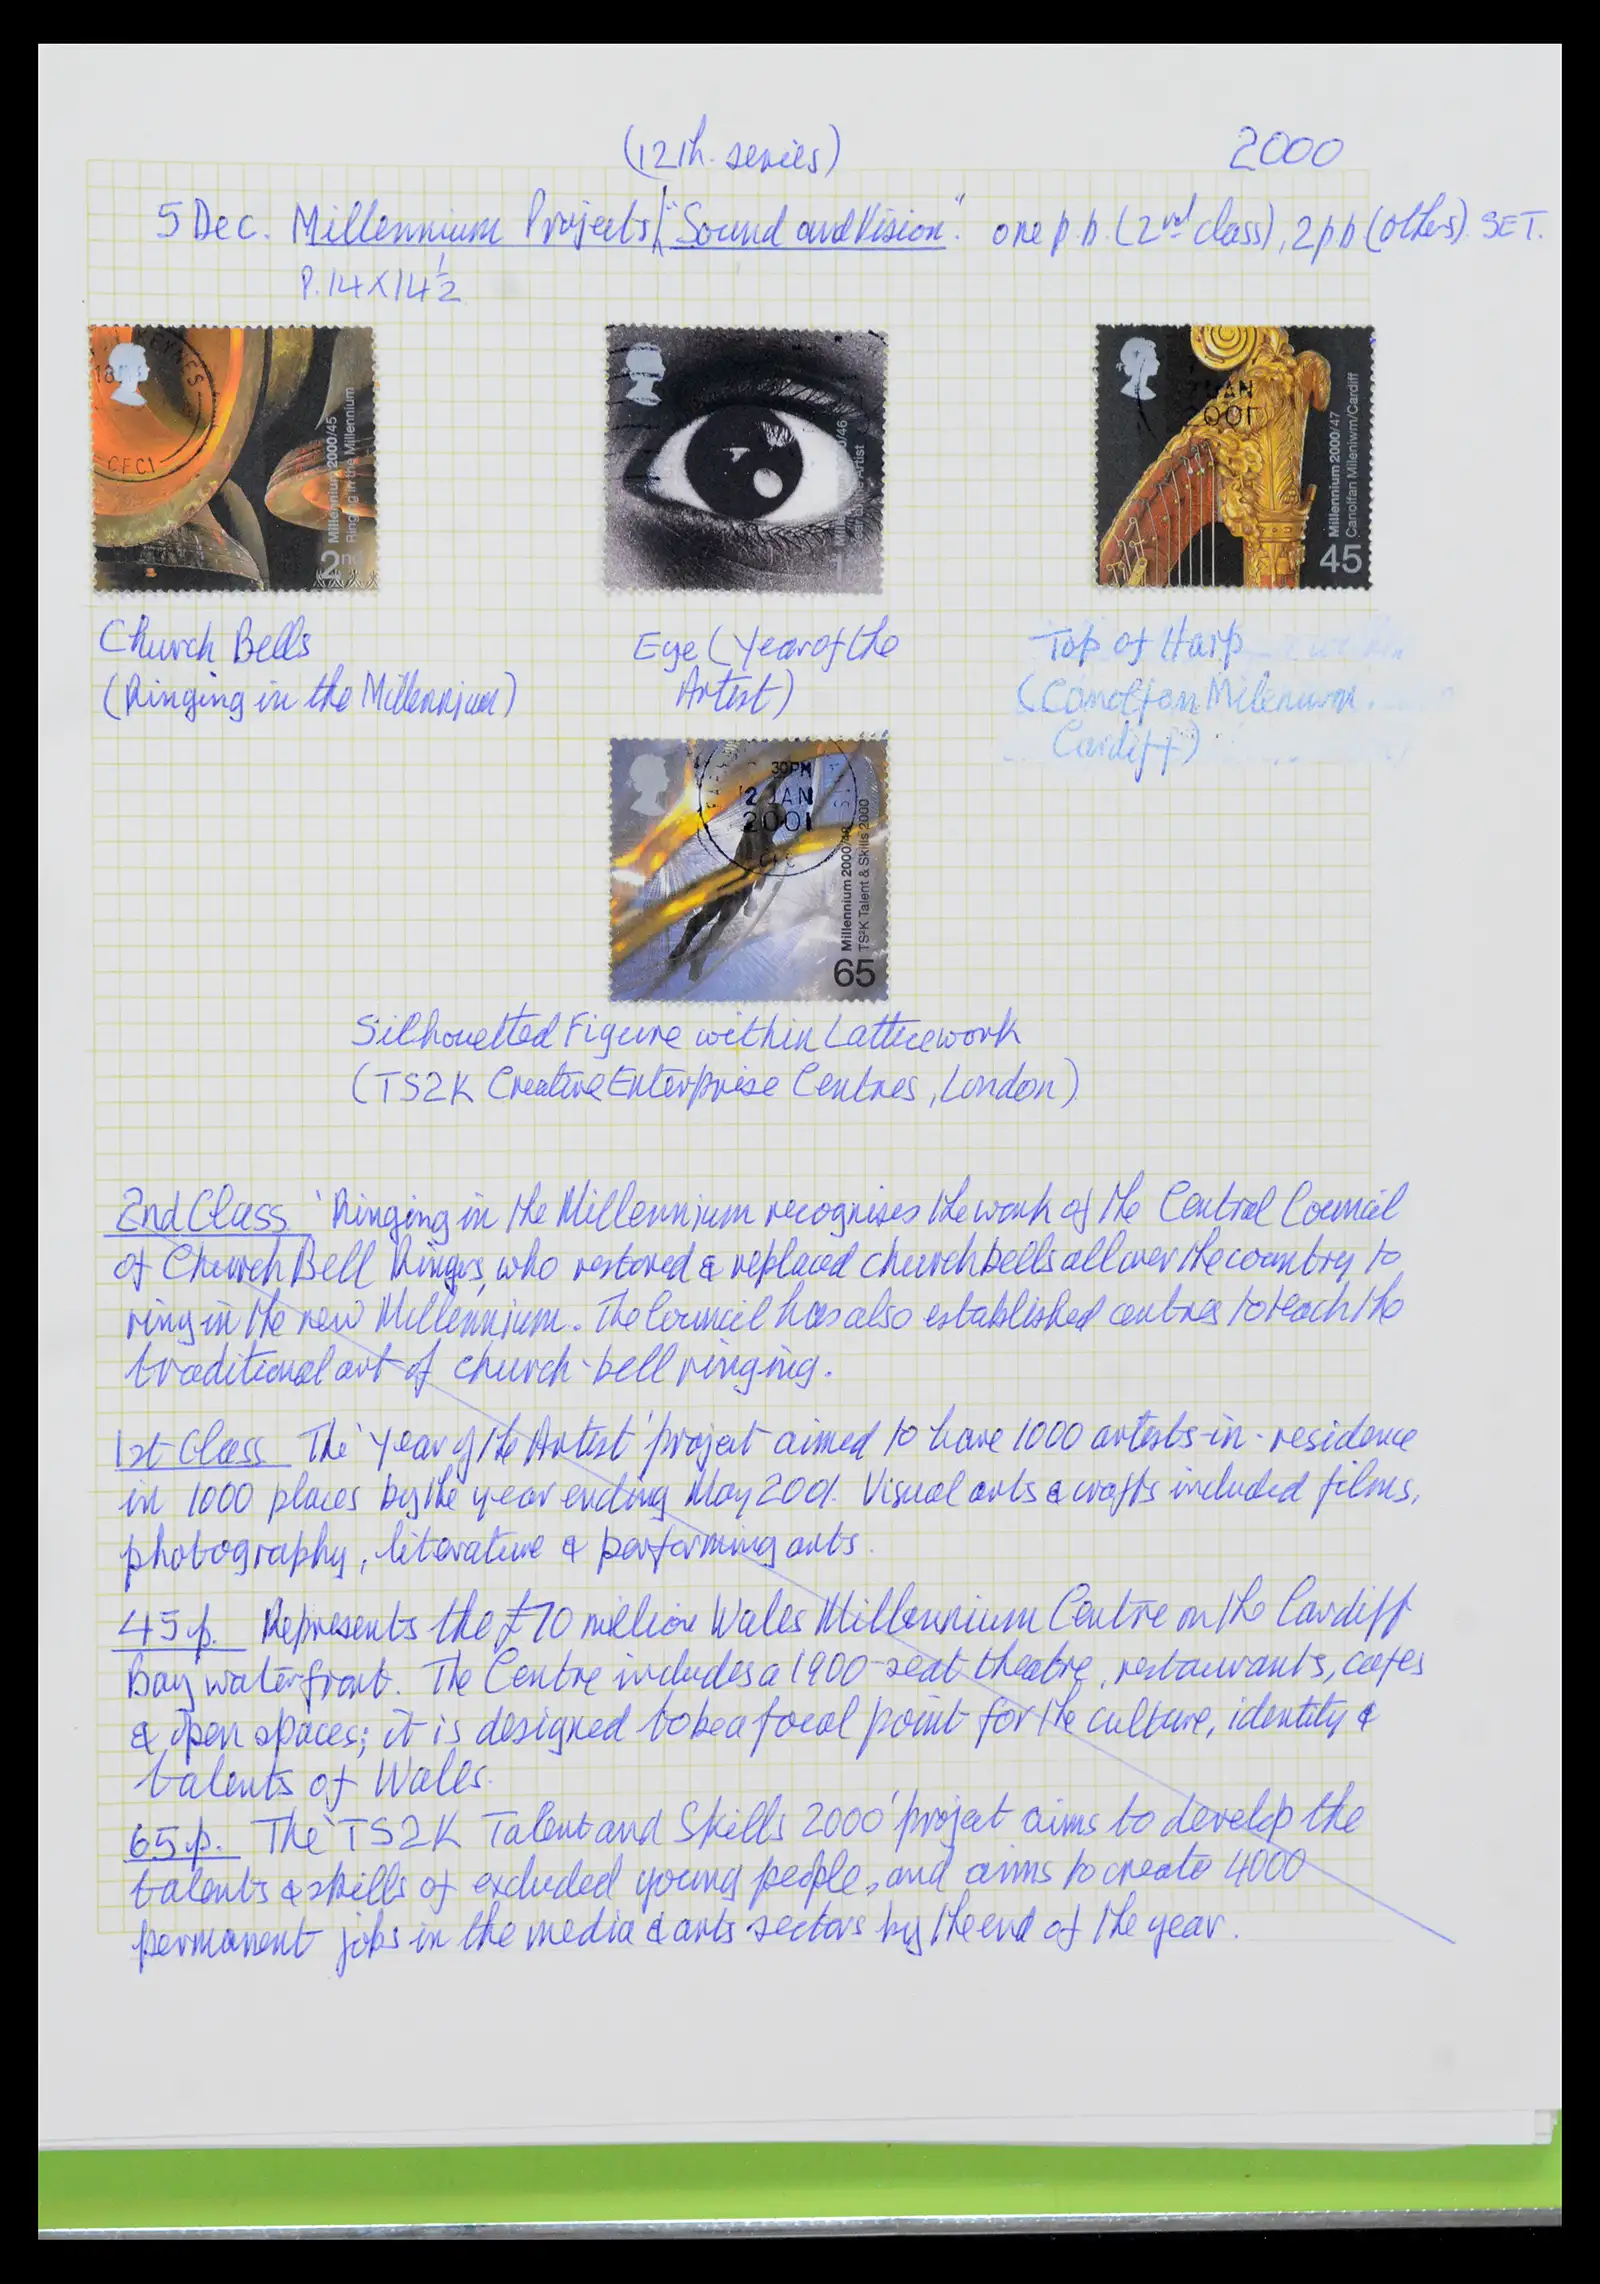 (12th. series)
2000
5 Dec. Millennium Projects ("Sound and Vision". one p.b. (2nd class), 2pb (others). SET.
P. 14 X 14 1/2
KEYNES
18
CFC1
2nd
Millennium 2000/45
Ringing in the Millennium
/46
Artist
JAN
2001
45
Millennium 2000/47
Canolfan Mileniwm/Cardiff
Church Bells
(Ringing in the Millennium)
Eye (Year of the
Artist)
Top of Harp
(Canolfan Milenium.
Cardiff)
30PM
2 JAN
2001
65
Millennium 2000/48
TS2K Talent & Skills 2000
Silhouetted Figure within Latticework
(TS2K Creative Enterprise Centres, London)
2nd Class 'Ringing in the Millennium recognises the work of the Central Council
of Church Bell Ringers, who restored & replaced church bells all over the country to
ring in the new Millennium. The Council has also established centres to teach the
traditional art of church-bell ringing.
1st Class The 'Year of the Artist' project aimed to have 1000 artists-in-residence
in 1000 places by the year ending May 2001. Visual arts & crafts included films,
photography, literature & performing arts.
45p. Represents the £70 million Wales Millennium Centre on the Cardiff
Bay waterfront. The Centre includes a 1900-seat theatre, restaurants, cafes
& open spaces; it is designed to be a focal point for the culture, identity &
talents of Wales.
65p. The 'TS2K Talent and Skills 2000' project aims to develop the
talents & skills of excluded young people, and aims to create 4000
permanent jobs in the media & arts sectors by the end of the year.